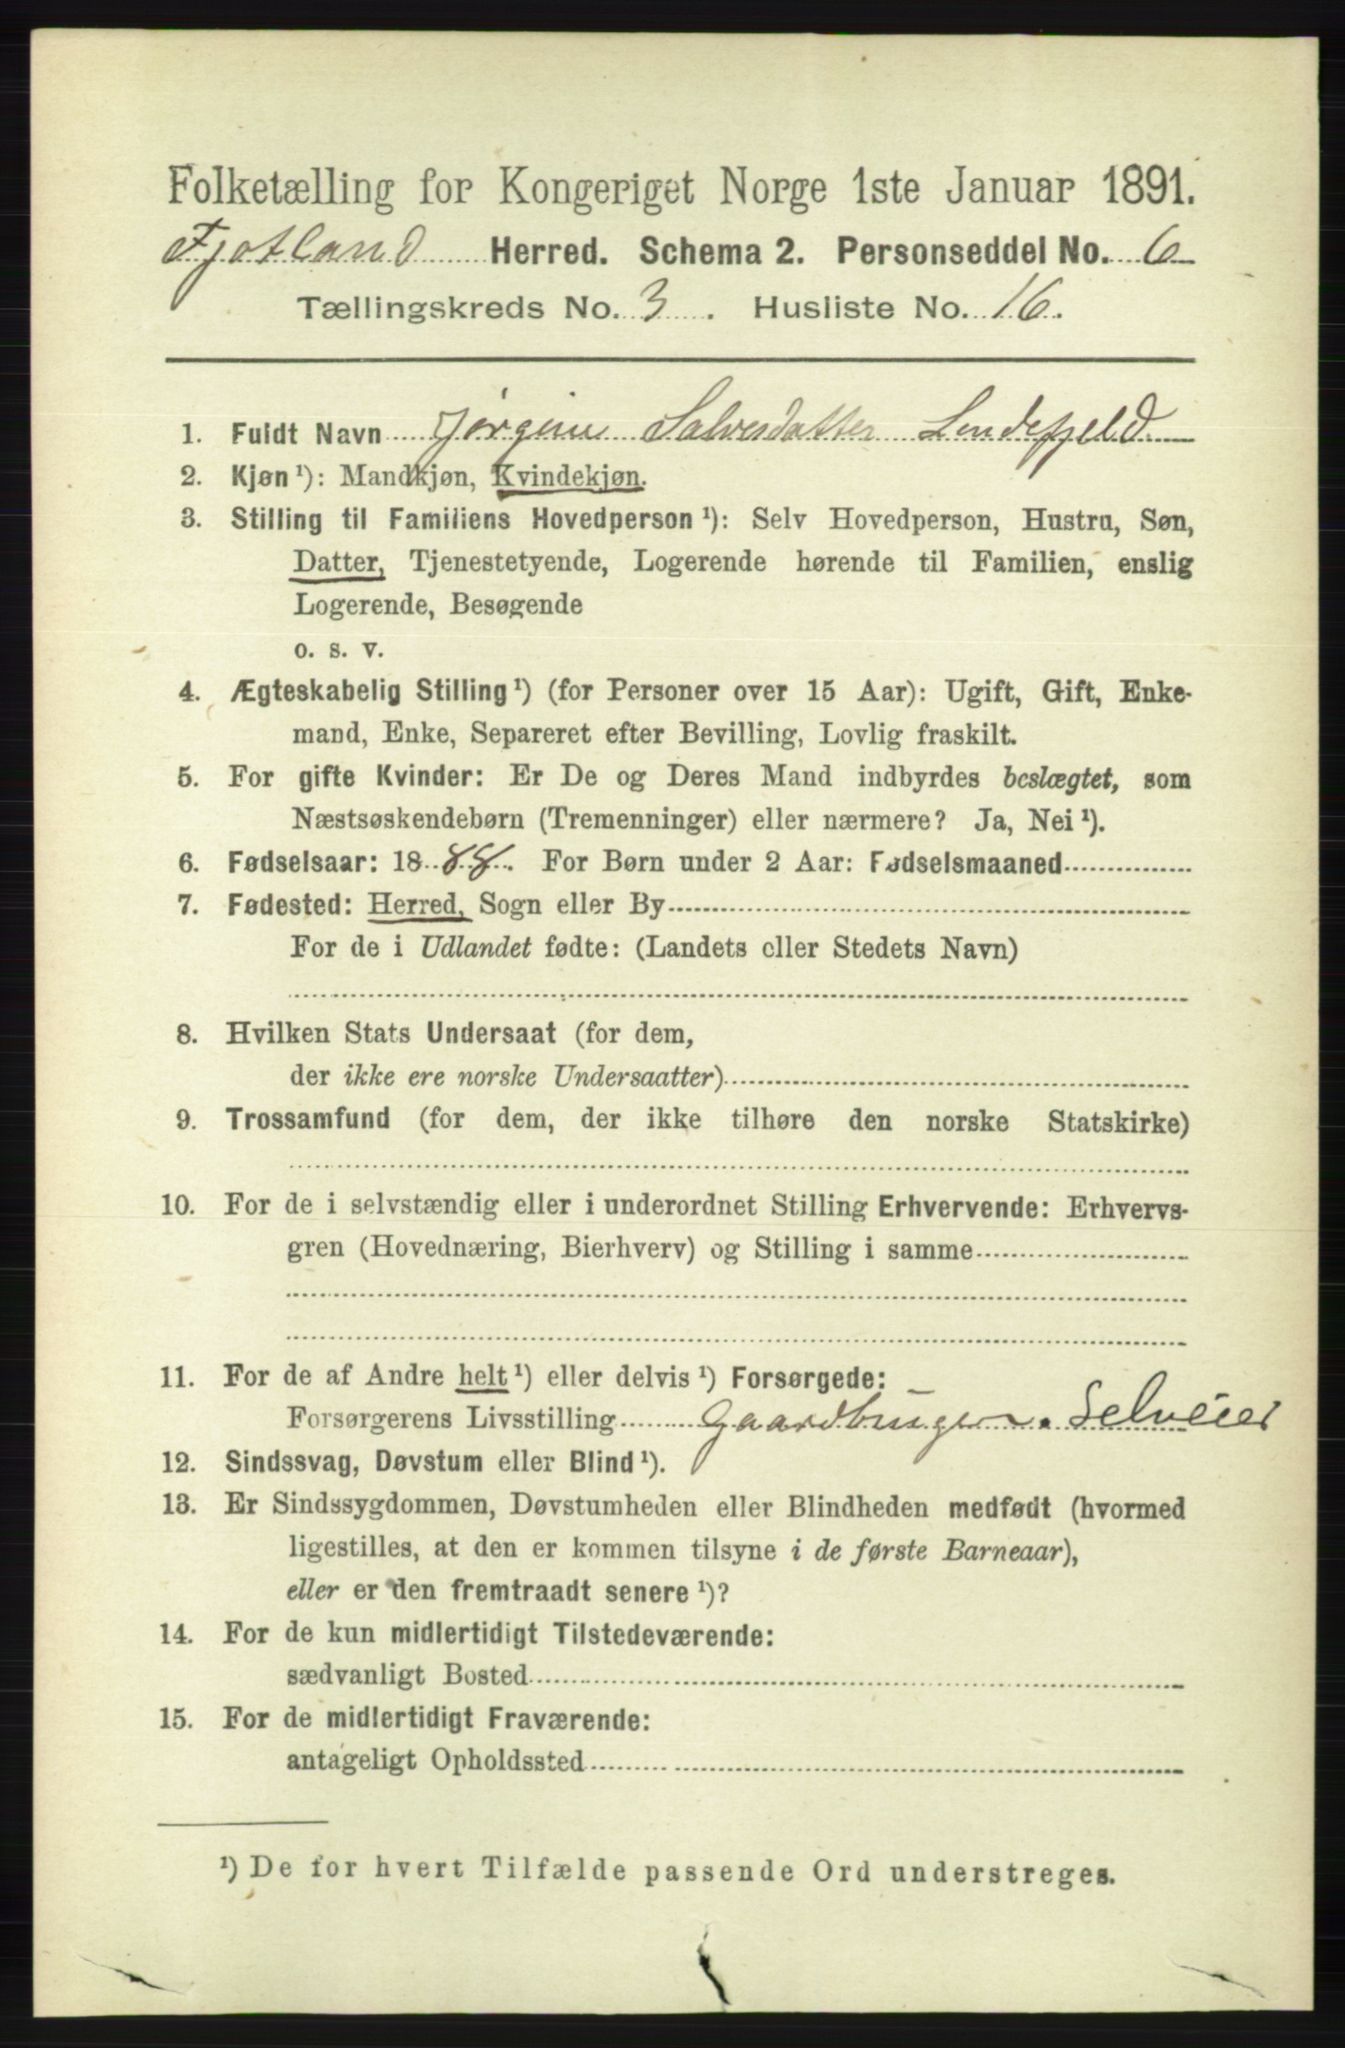 Folketælling for Kongeriget Norge 1ste Januar 1891.
Fjotland Herred. Schema 2. Personseddel No. 6
Tællingskreds No. 3. Husliste No. 16.
1. Fuldt Navn Jørgine Salvesdatter Lindefjeld
2. Kjøn ¹): Mandkjøn, Kvindekjøn.
3. Stilling til Familiens Hovedperson ¹): Selv Hovedperson, Hustru, Søn,
Datter, Tjenestetyende, Logerende hørende til Familien, enslig
Logerende, Besøgende
o. s. v.
4. Ægteskabelig Stilling ¹) (for Personer over 15 Aar): Ugift, Gift, Enke-
mand, Enke, Separeret efter Bevilling, Lovlig fraskilt.
5. For gifte Kvinder: Er De og Deres Mand indbyrdes beslægtet, som
Næstsøskendebørn (Tremenninger) eller nærmere? Ja, Nei ¹).
6. Fødselsaar: 1888. For Børn under 2 Aar: Fødselsmaaned
7. Fødested: Herred, Sogn eller By
For de i Udlandet fødte: (Landets eller Stedets Navn)
8. Hvilken Stats Undersaat (for dem,
der ikke ere norske Undersaatter)
9. Trossamfund (for dem, der ikke tilhøre den norske Statskirke)
10. For de i selvstændig eller i underordnet Stilling Erhvervende: Erhvervs-
gren (Hovednæring, Bierhverv) og Stilling i samme
11. For de af Andre helt ¹) eller delvis ¹) Forsørgede:
Forsørgerens Livsstilling Gaardbruger. Selveier
12. Sindssvag, Døvstum eller Blind ¹).
13. Er Sindssygdommen, Døvstumheden eller Blindheden medfødt (hvormed
ligestilles, at den er kommen tilsyne i de første Barneaar),
eller er den fremtraadt senere ¹)?
14. For de kun midlertidigt Tilstedeværende:
sædvanligt Bosted
15. For de midlertidigt Fraværende:
antageligt Opholdssted
¹) De for hvert Tilfælde passende Ord understreges.